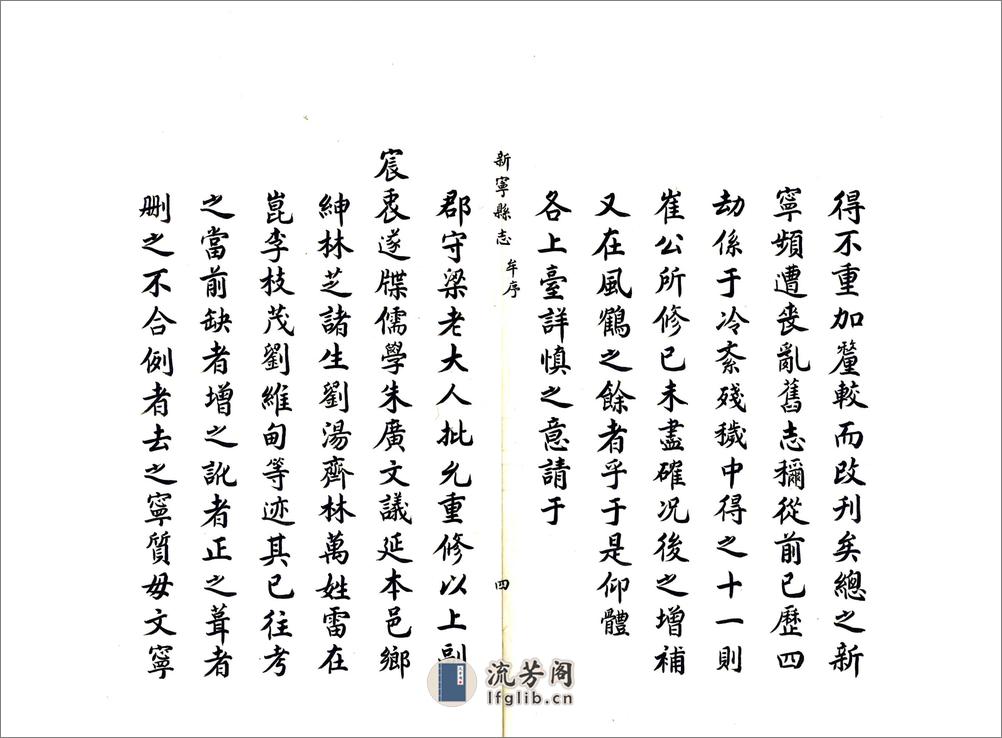 得不重加釐較而改刋矣總之新
寧頻遭喪亂舊志稱從前已歷四
劫係于冷紊殘穢中得之十一則
崔公所修已未盡確况後之增補
又在風鶴之餘者乎于是仰體
各上臺詳慎之意請于
新寧縣志 牟序 四
郡守梁老大人批允重修以上副
宸衷遂牒儒學朱廣文議延本邑鄉
紳林芝諸生劉湯齊林萬姓雷在
崑李枝茂劉維甸等迹其已往考
之當前缺者增之訛者正之葺者
刪之不合例者去之寧質毋文寧
流芳阁
lfglib.cn